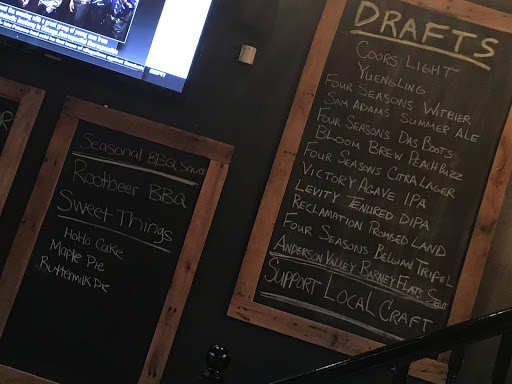 Seasonal BBQ Sauce
Rootbeer BBQ
Sweet Things
HoHo Cake
Maple Pie
Buttermilk Pie
DRAFTS
COORS LIGHT
YUENGLING
FOUR SEASONS WITBIER
SAM ADAMS SUMMER ALE
FOUR SEASONS DAS BOOTS
BLOOM BREW PEACH BUZZ
FOUR SEASONS CITRA LAGER
VICTORY AGAVE IPA
LEVITY TENURED DIPA
RECLAMATION PROMISED LAND
FOUR SEASONS BELGIAN TRIPEL
ANDERSON VALLEY BARNEY FLATS
SUPPORT LOCAL CRAFT